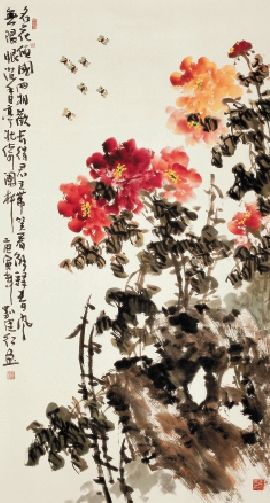 名花傾國兩相歡長得君王帶笑看解釋春風
無限恨沉香亭北倚闌杆
庚寅年